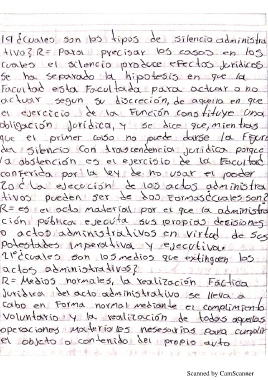 19 ¿Cuales son los tipos de silencio administra
tivo? R= Para precisar los casos en los
cuales el silencio produce efectos jurídicos
se ha separado la hipotesis en que la
Facultad esta Facultada para actuar o no
actuar segun su discreción, de aquella en que
el ejercicio de la Función constituye una
obligación jurídica, y se dice que, mientras
que el primer caso no puede darse la Figura
del silencio Con trascendencia jurídica porque
la abstención es el ejercisio de la Facultad
conferida por la ley de no usar el poder
20 ¿ la ejecución de los actos administra
tivos pueden ser de dos Formas ¿cuales son?
R= es el acto material por el que la administra
ción pública ejecuta sus propias decisiones
o actos administrativos en virtud de sus
potestades imperativa y ejecutiva.
21 ¿cuales son los medios que extinguen los
actos administrativos?
R= Medios normales, la realización Fáctica
Jurídica del acto administrativo se lleva a
cabo en Forma normal mediante el cumplimiento
voluntario y la realización de todas aquellas
operaciones materiales nesesarias para cumplir
el objeto o contenido del propio auto
Scanned by CamScanner